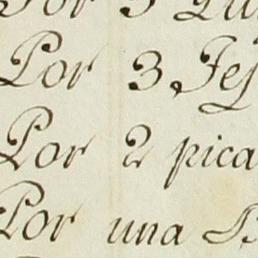 Por 3
Por 3
Por 2 pica
Por una